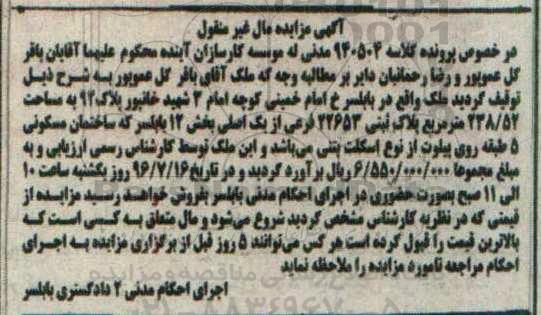 آگهی مزایده مال غیر منقول
در خصوص پرونده کلاسه ۹۴۰۵۰۴ مدنی له موسسه کارسازان آینده محکوم علیهما آقایان باقر
گل عموپور و رضا رحمانیان دایر بر مطالبه وجه که ملک آقای باقر گل عموپور به شرح ذیل
توقیف گردید ملک واقع در بابلسر خ امام خمینی کوچه امام ۲ شهید خانپور پلاک ۹۲ به مساحت
۲۳۸/۵۲ مترمربع پلاک ثبتی ۲۲۶۵۳ فرعی از یک اصلی بخش ۱۲ بابلسر که ساختمان مسکونی
۵ طبقه روی پیلوت از نوع اسکلت بتنی می‌باشد و این ملک توسط کارشناس رسمی ارزیابی و به
مبلغ مجموعا ۶/۵۵۰/۰۰۰/۰۰۰ ریال برآورد گردید و در تاریخ ۹۶/۷/۱۶ روز یکشنبه ساعت ۱۰
الی ۱۱ صبح بصورت حضوری در اجرای احکام مدنی بابلسر بفروش خواهد رسید مزایده از
قیمتی که در نظریه کارشناس مشخص گردید شروع می‌شود و مال متعلق به کسی است که
بالاترین قیمت را قبول کرده است هر کس می‌توانند ۵ روز قبل از برگزاری مزایده به اجرای
احکام مراجعه تامورد مزایده را ملاحظه نماید
اجرای احکام مدنی ۲ دادگستری بابلسر